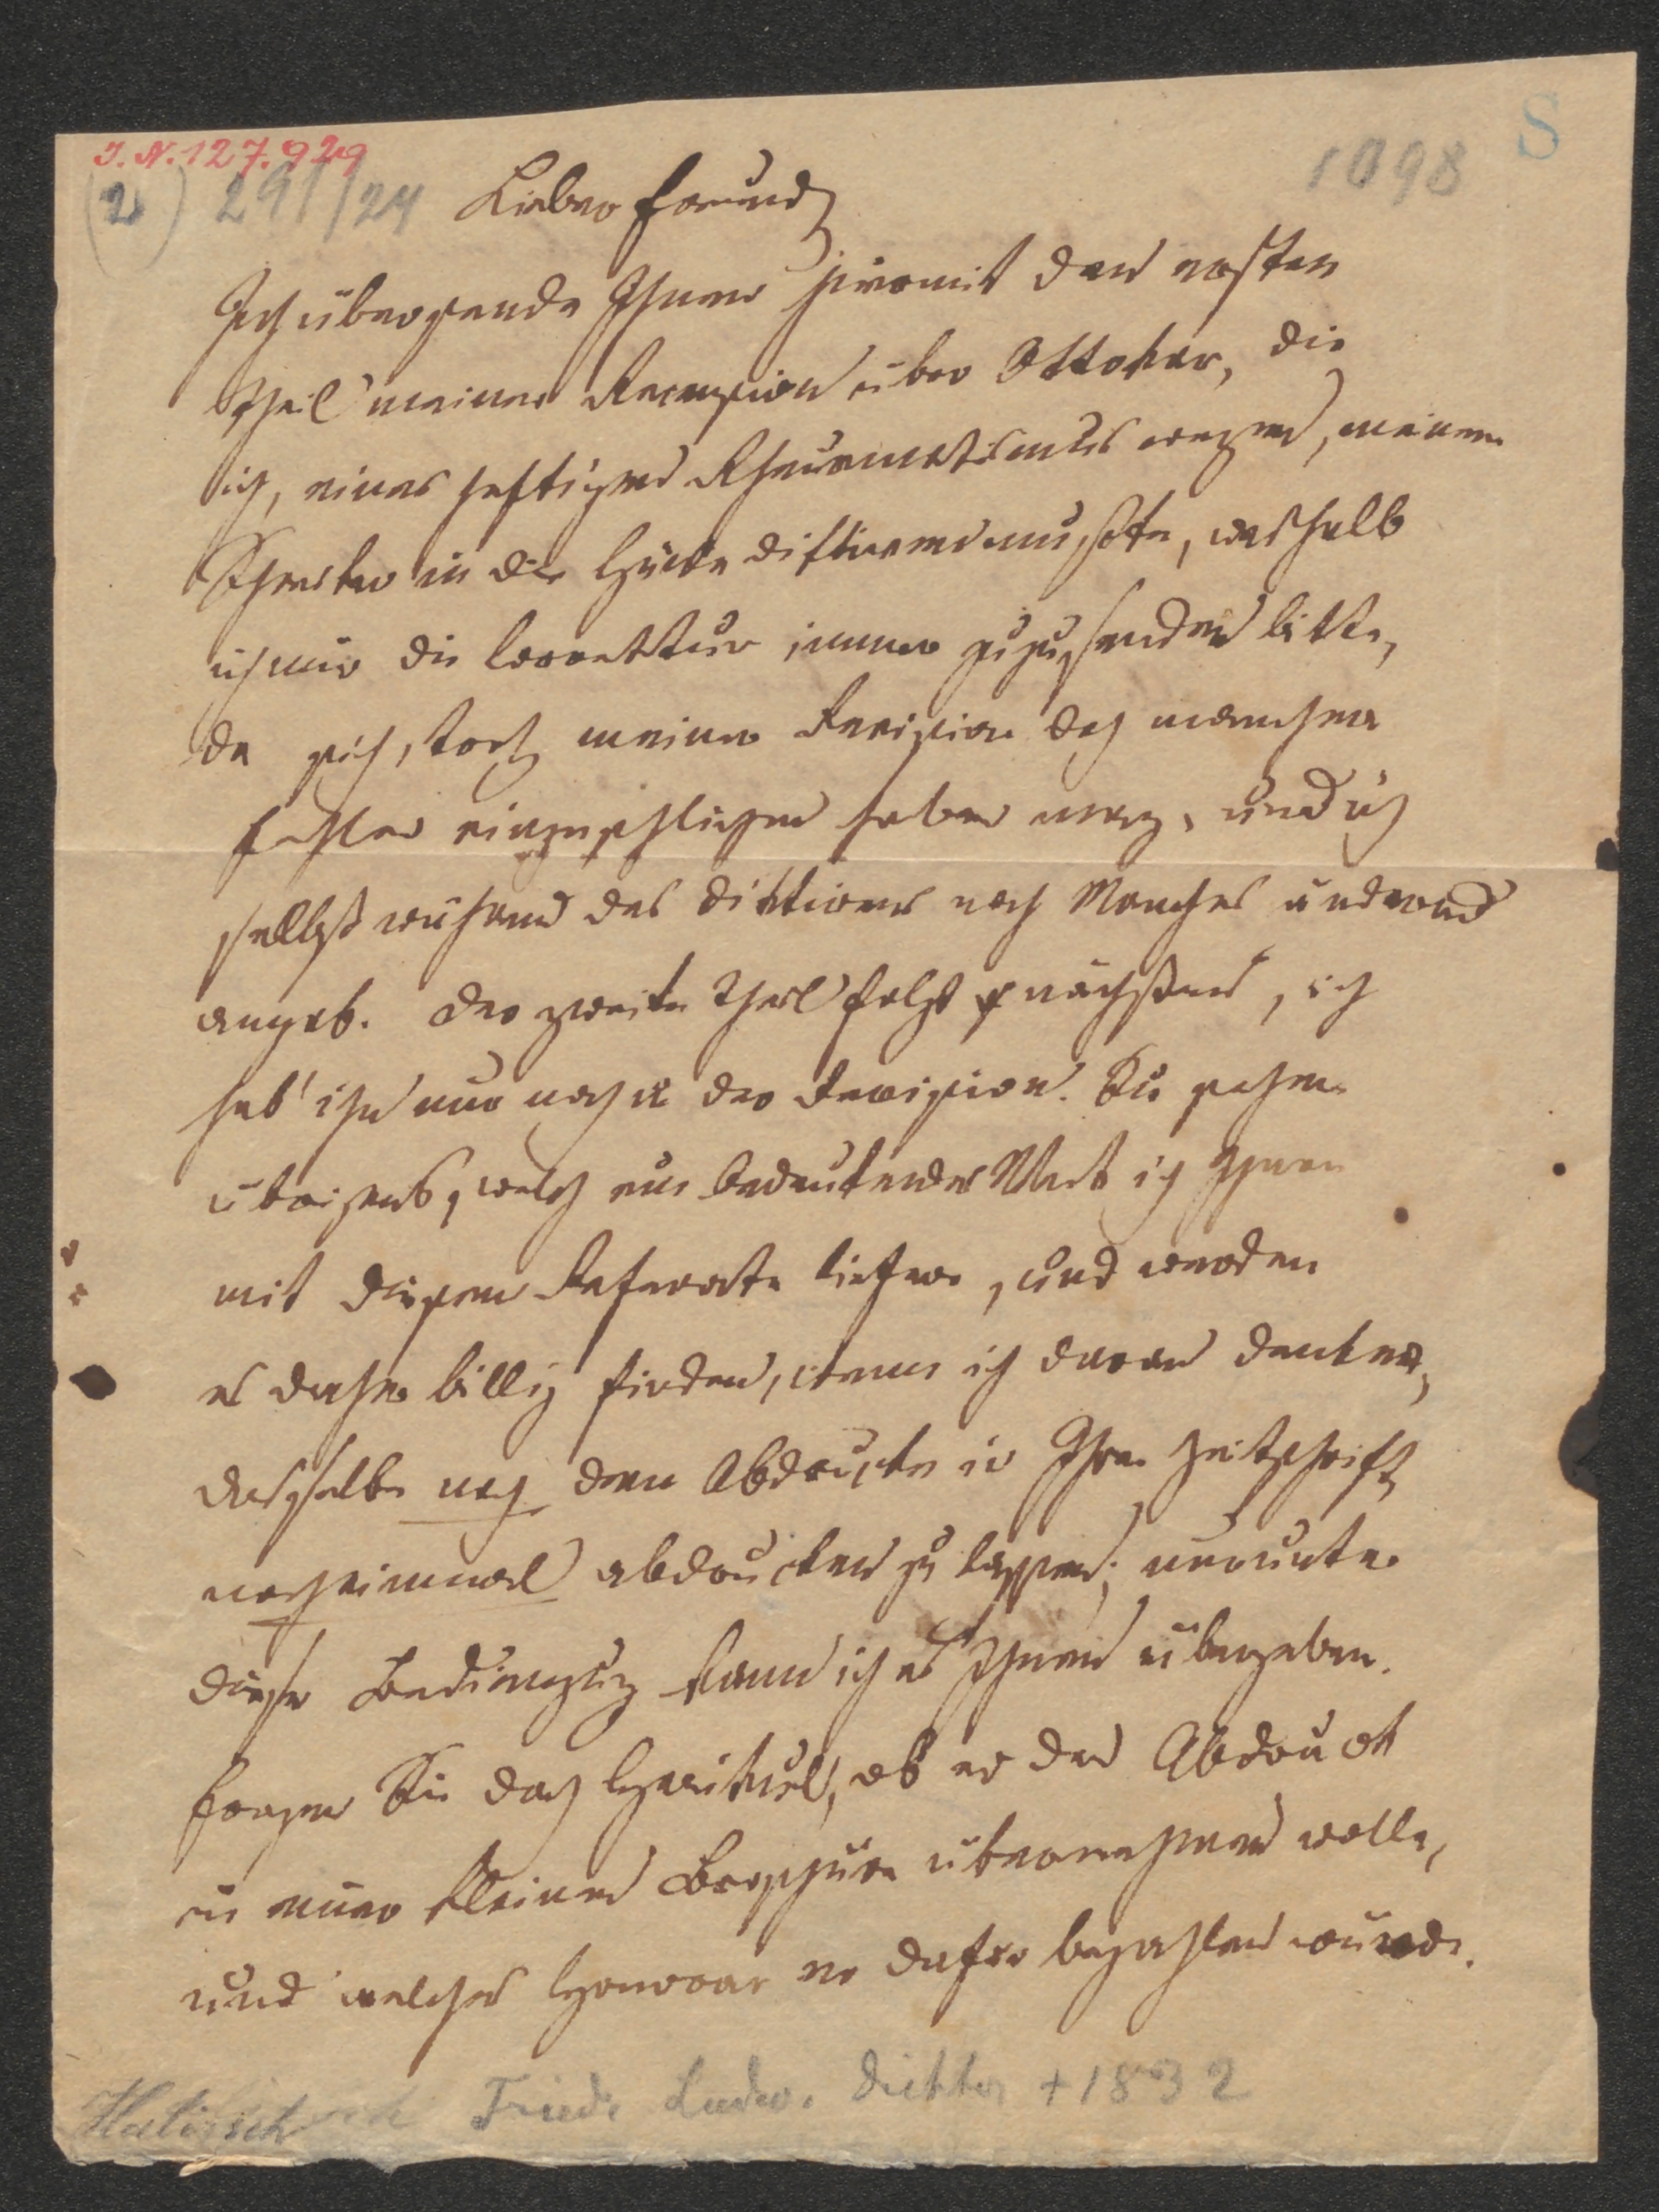 I. N. 127.929
(2) 291/24
1098 S
Lieber Freund,
Ich übersende Ihnen hiermit den ersten
Theil meiner Recension über Ottokar, die
ich, eines heftigen Rheumatismus wegen, meinem
in die diktieren mußte, weshalb
ich mir die Correktur immer zuzusenden bitte,
da sich, trotz meiner Revision doch mancher
Fehler eingeschlichen haben mag, und ich
selbst während des Diktierens noch Manches ändernd
angab. Der zweite Theil folgt nächstens, ich
hab' ihn nur noch in der Revision. Sie sehen
übrigens, welch ein bedeutendes Werk ich Ihnen
mit diesem Referate liefere, und werden
es daher billig finden, wenn ich daran denke,
dasselbe nach dem Abdrucke in Ihrer Zeitschrift
nocheinmal abdrucken zu lassen; nur unter
dieser Bedingung kann ich es Ihnen übergeben.
Fragen Sie doch ob er den Abdruck
in einer kleinen Broschüre übernehmen wolle,
und welches Honorar er dafür bezahlen würde.
Halirsch Friedr. Ludw. Dichter † 1832